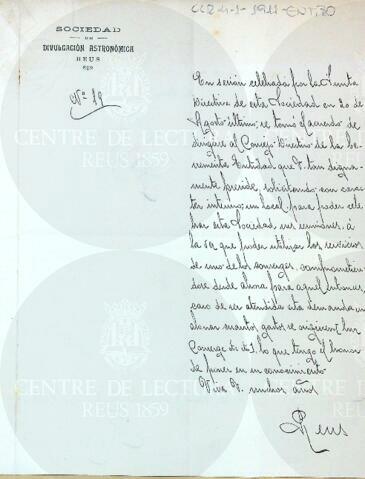 CLR 4-1-1911-ENT,30
SOCIEDAD
DE
DIVULGACIÓN ASTRONÓMICA
REUS
Nº 19
En sesión celebrada por la Junta
Directiva de esta Sociedad en 20 de
Agosto último, se tomó el acuerdo de
dirigirse al Consejo Directivo de la be-
nemérita Entidad que V. tan digna-
mente preside, solicitando, con carac-
ter interino, un local, para poder cele-
brar esta Sociedad sus reuniones. á
la vez que poder utilizar los servicios
de uno de los conserjes, comprometien-
dose desde ahora para aquel entonces,
caso de ser atendida esta demanda, en
abonar cuantos gastos se
lo que tengo el honor
de poner en su conocimiento
Viva V. muchos años
Reus
CENTRE DE LECTURA
REUS 1859
CENTRE DE LECTURA
REUS 1859